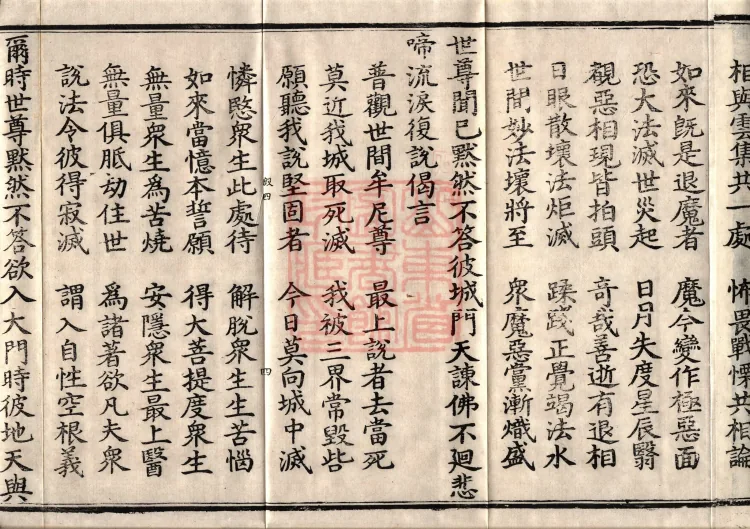 相與雲集共一處 怖畏戰慄共相論
如來既是退魔者 魔今變作極惡面
恐大法滅世災起 日月失度星辰翳
觀惡相現皆拍頭 奇哉善逝有退相
日眼散壞法炬滅 蹂踐正覺竭法水
世間妙法壞將至 眾魔惡黨漸熾盛
世尊聞已默然不答彼城門天諫佛不迴悲
啼流淚復說偈言
普觀世間牟尼尊 最上說者去當死
莫近我城取死滅 我被三界常毀呰
願聽我說堅固者 今日莫向城中滅
殷四 四
憐愍衆生此處待 解脫衆生生苦惱
如來當憶本誓願 得大菩提度衆生
無量衆生為苦燒 安隱衆生最上醫
無量俱胝劫住世 為諸著欲凡夫衆
說法令彼得寂滅 謂入自性空根義
爾時世尊默然不答欲入大門時彼地天與